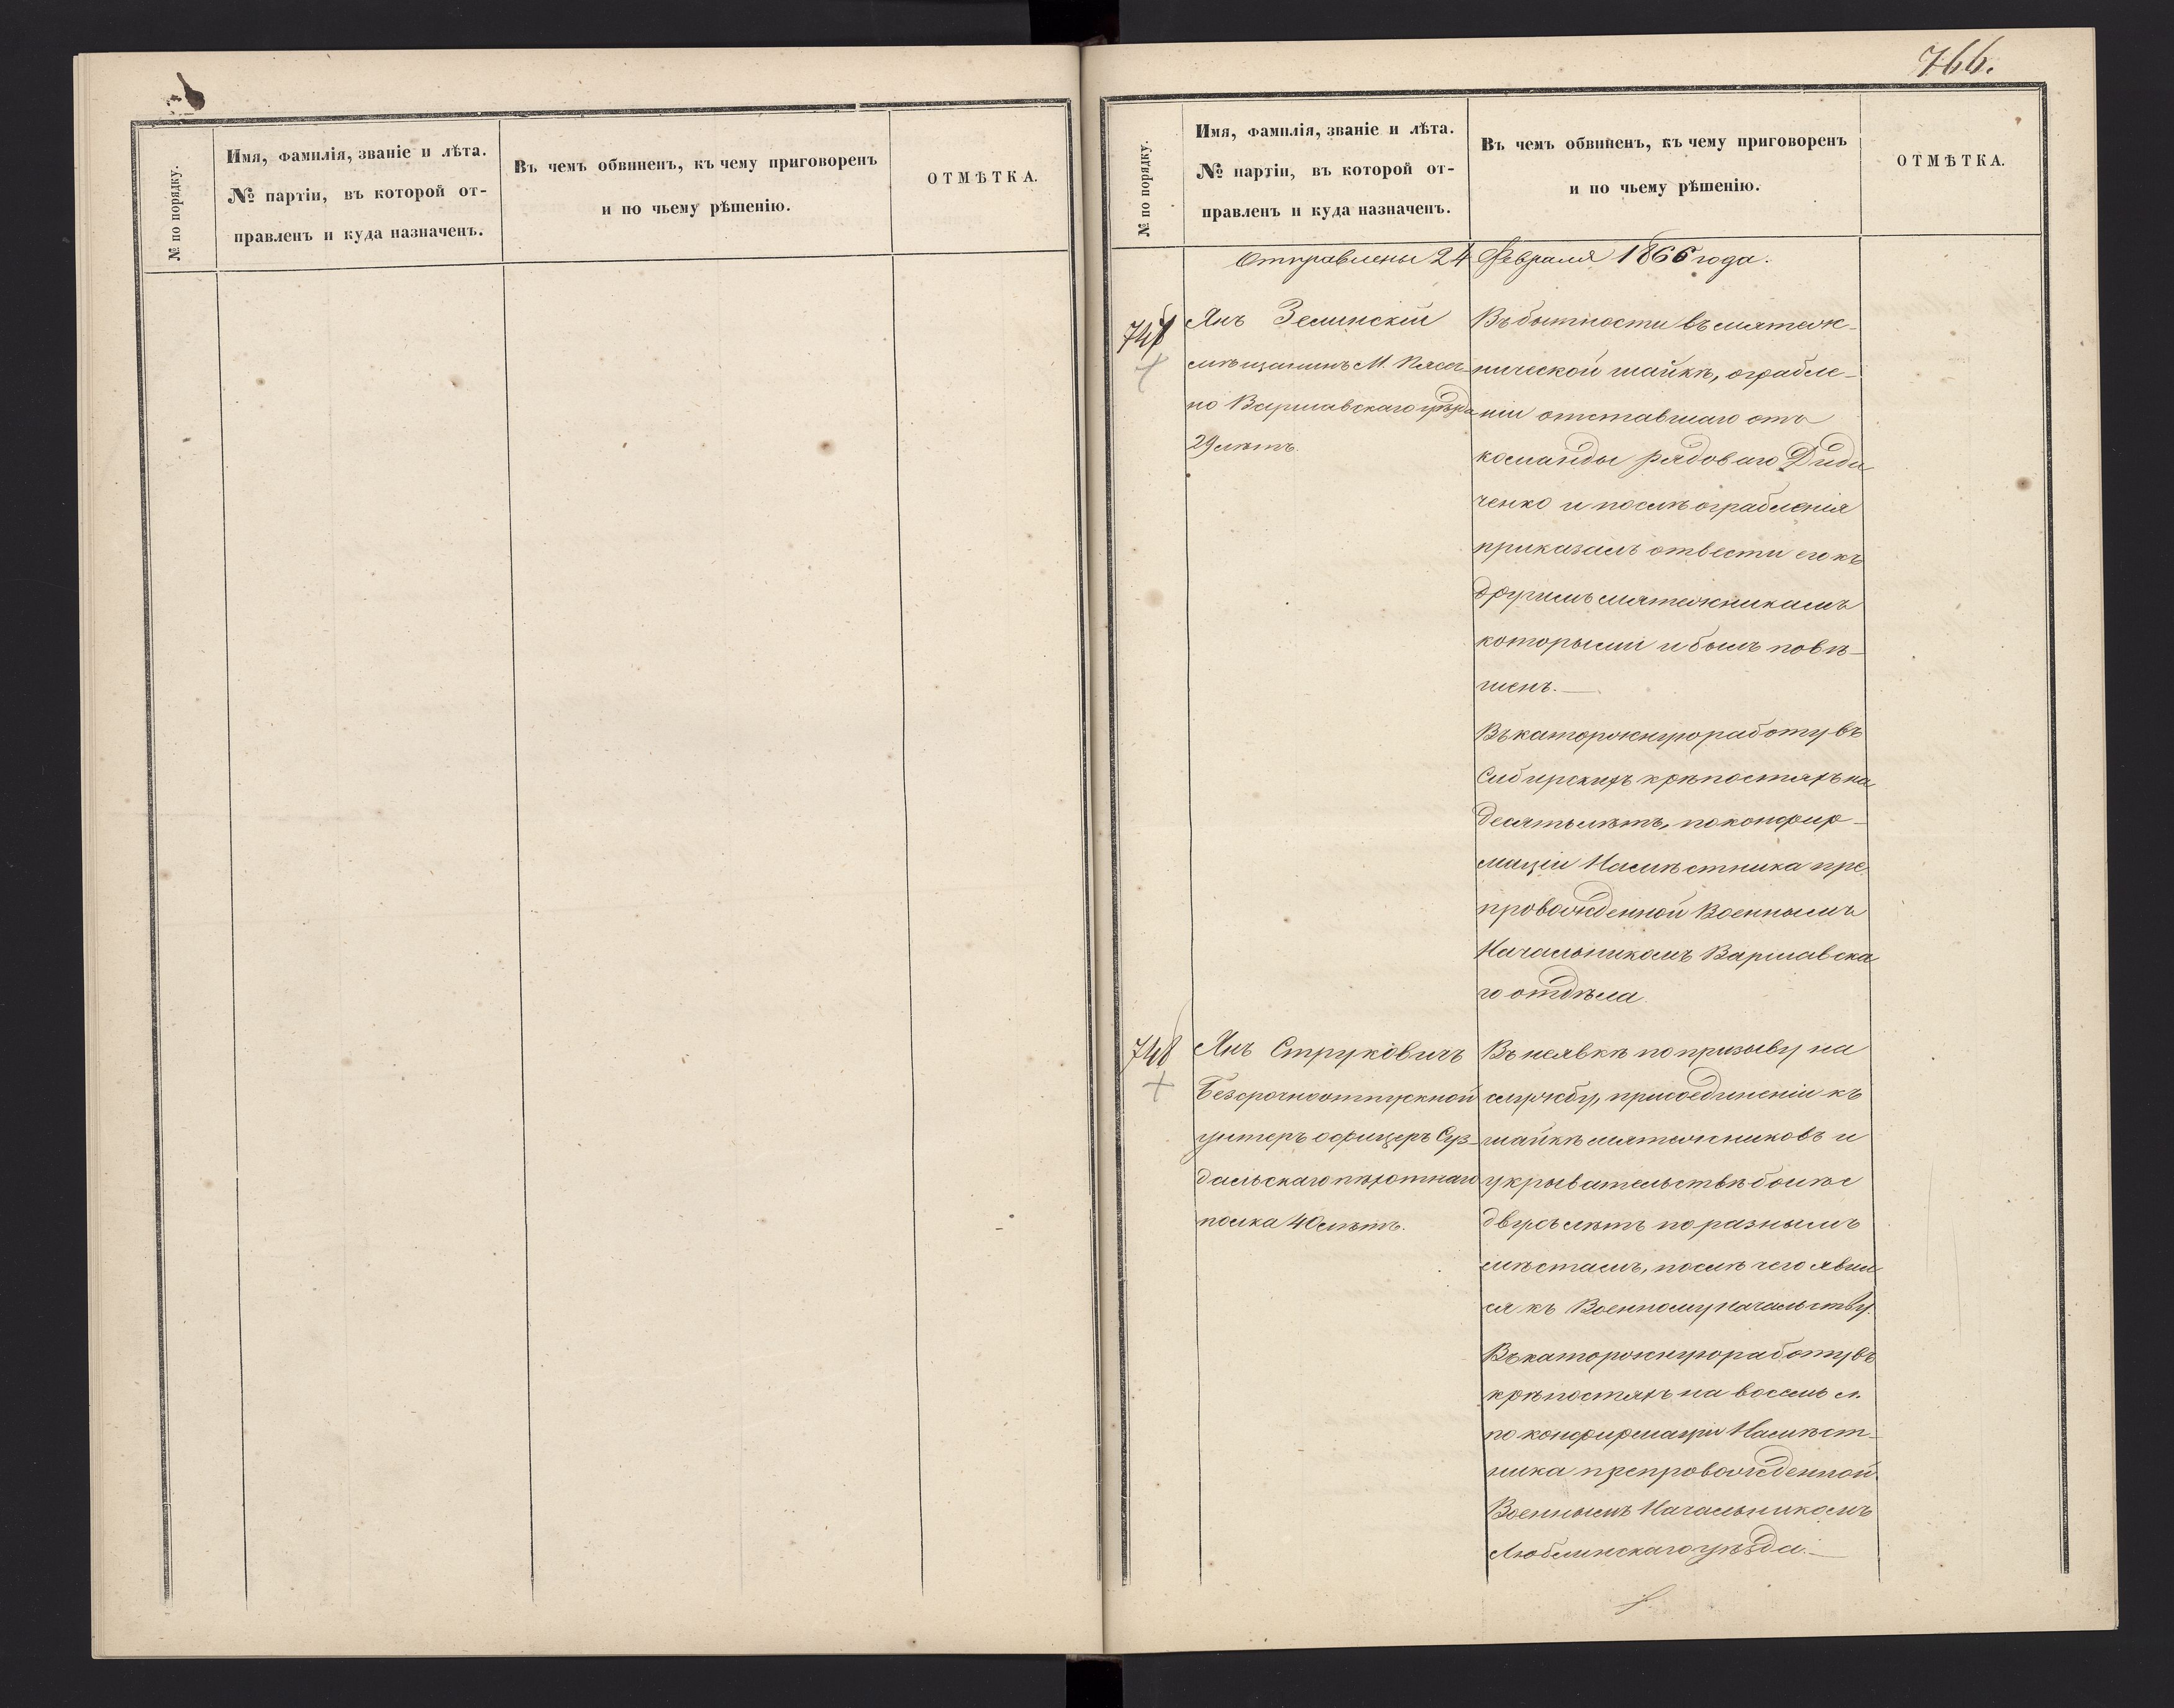 № по порядку.
Имя, фамилія, званіе и лѣта.
№ партіи, въ которой от-
правленъ и куда назначенъ.
Въ чемъ обвиненъ, къ чему приговоренъ
и по чьему рѣшенію.
ОТМѢТКА.
766.
№ по порядку.
Имя, фамилія, званіе и лѣта.
№ партіи, въ которой от-
правленъ и куда назначенъ.
Въ чемъ обвиненъ, къ чему приговоренъ
и по чьему рѣшенію.
ОТМѢТКА.
Отправлены 24 Февраля 1866 года.
747
Янъ Зелинскій
мѣщанинъ М. Пясеч-
но Варшавскаго уѣзда
29 лѣтъ.
Въ бытности въ мятеж-
нической шайкѣ, ограбле-
ніи отставшаго отъ
команды рядоваго Диди
ченко и послѣ ограбленія
приказалъ отвести его къ
другимъ мятежникамъ
которыми и былъ повѣ-
шенъ.—
Въ каторжную работу въ
Сибирскихъ крѣпостяхъ на
десять лѣтъ, по конфир-
маціи Намѣстника пре-
провожденной Военнымъ
Начальникомъ Варшавска
го отдѣла.
748
Янъ Струковичъ
Безсрочноотпускной
унтеръ офицеръ Суз-
дальскаго пѣхотнаго
полка 40 лѣтъ.
Въ неявкѣ по призыву на
службу, присоединеніи къ
шайкѣ мятежниковъ и
укрывательствѣ болѣе
двухъ лѣтъ по разнымъ
мѣстамъ, послѣ чего явил
ся къ Военному начальству.
Въ каторжную работу въ
крѣпостяхъ на восемь л.
по конфирмаціи Намѣст-
ника препровожденной
Военнымъ Начальникомъ
Люблинскаго уѣзда.—